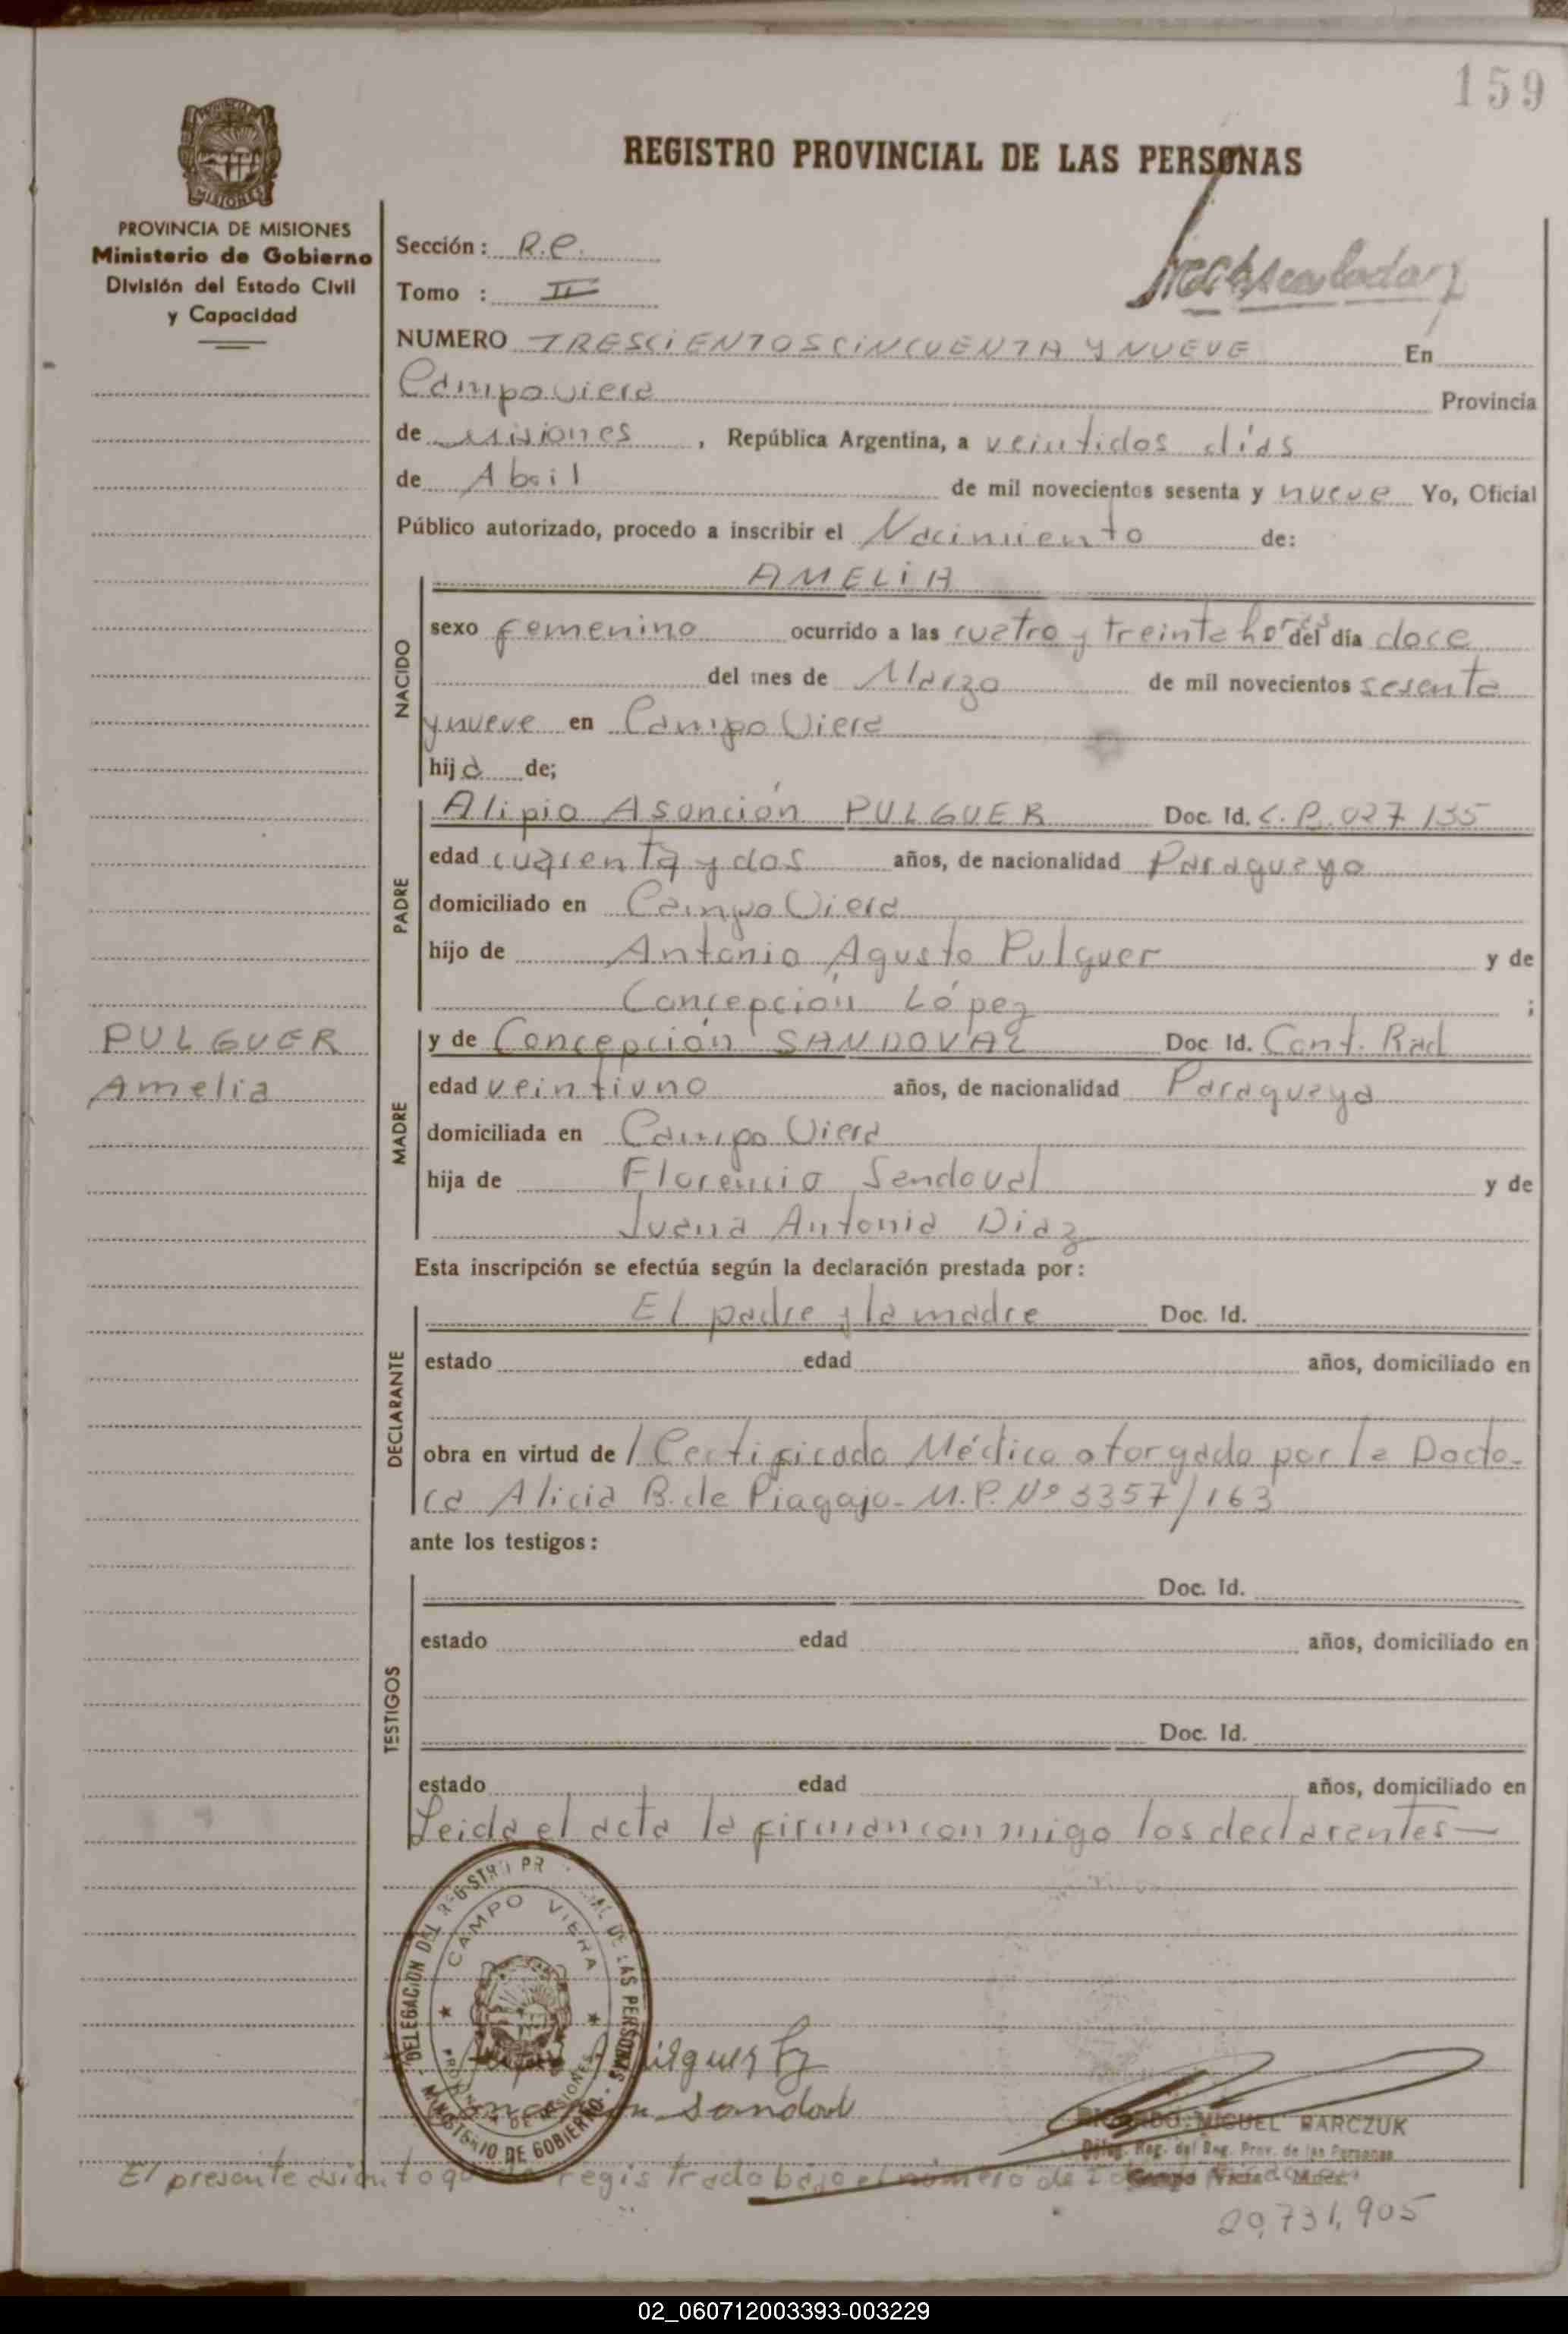 159
REGISTRO PROVINCIAL DE LAS PERSONAS
MISIONES
PROVINCIA DE MISIONES
Ministerio de Gobierno
División del Estado Civil
y Capacidad
Sección: R.C.
Tomo : II
NUMERO TRESCIENTOS CINCUENTA Y NUEVE En
Campo Viera Provincia
de Misiones, República Argentina, a veintidos días
de Abril de mil novecientos sesenta y nueve Yo, Oficial
Público autorizado, procedo a inscribir el Nacimiento de:
NACIDO
AMELIA
sexo femenino ocurrido a las cuatro y treinta horas del día doce
del mes de Marzo de mil novecientos sesenta
y nueve en Campo Viera
hija de;
PADRE
Alipio Asunción PULGUER Doc. Id. C.P. 027135
edad cuarenta y dos años, de nacionalidad Paraguayo
domiciliado en Campo Viera
hijo de Antonio Agusto Pulguer y de
Concepción López ;
PULGUER
Amelia
MADRE
y de Concepción SANDOVAL Doc Id. Cont. Rad
edad veintiuno años, de nacionalidad Paraguaya
domiciliada en Campo Viera
hija de Florencio Sandoval y de
Juana Antonia Diaz
Esta inscripción se efectúa según la declaración prestada por:
DECLARANTE
El padre y la madre Doc. Id.
estado edad años, domiciliado en
obra en virtud de / Certificado Médico otorgado por la Docto-
ra Alicia B. de Piagajo - M.P. Nº 3357/163
ante los testigos:
TESTIGOS
Doc. Id.
estado edad años, domiciliado en
Doc. Id.
estado edad años, domiciliado en
Leida el acta la firman con migo los declarantes—
DELEGACION DEL REGISTRO PR AL DE LAS PERSONAS
CAMPO VIERA
PROVINCIA DE MISIONES
MINISTERIO DE GOBIERNO
Sandoval
RICARDO MIGUEL BARCZUK
Deleg. Reg. del Reg. Prov. de las Personas
Campo Viera Mnes.
El presente asiento queda registrado bajo el número de
20,731,905
02_060712003393-003229